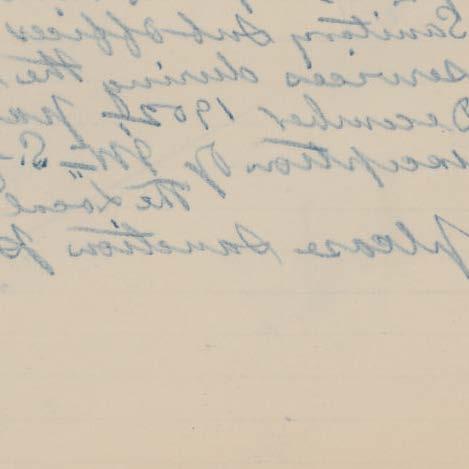 Sanitary Sub-officer
services during the
December 1902
inception of Mr S.
the Local
please Sanction